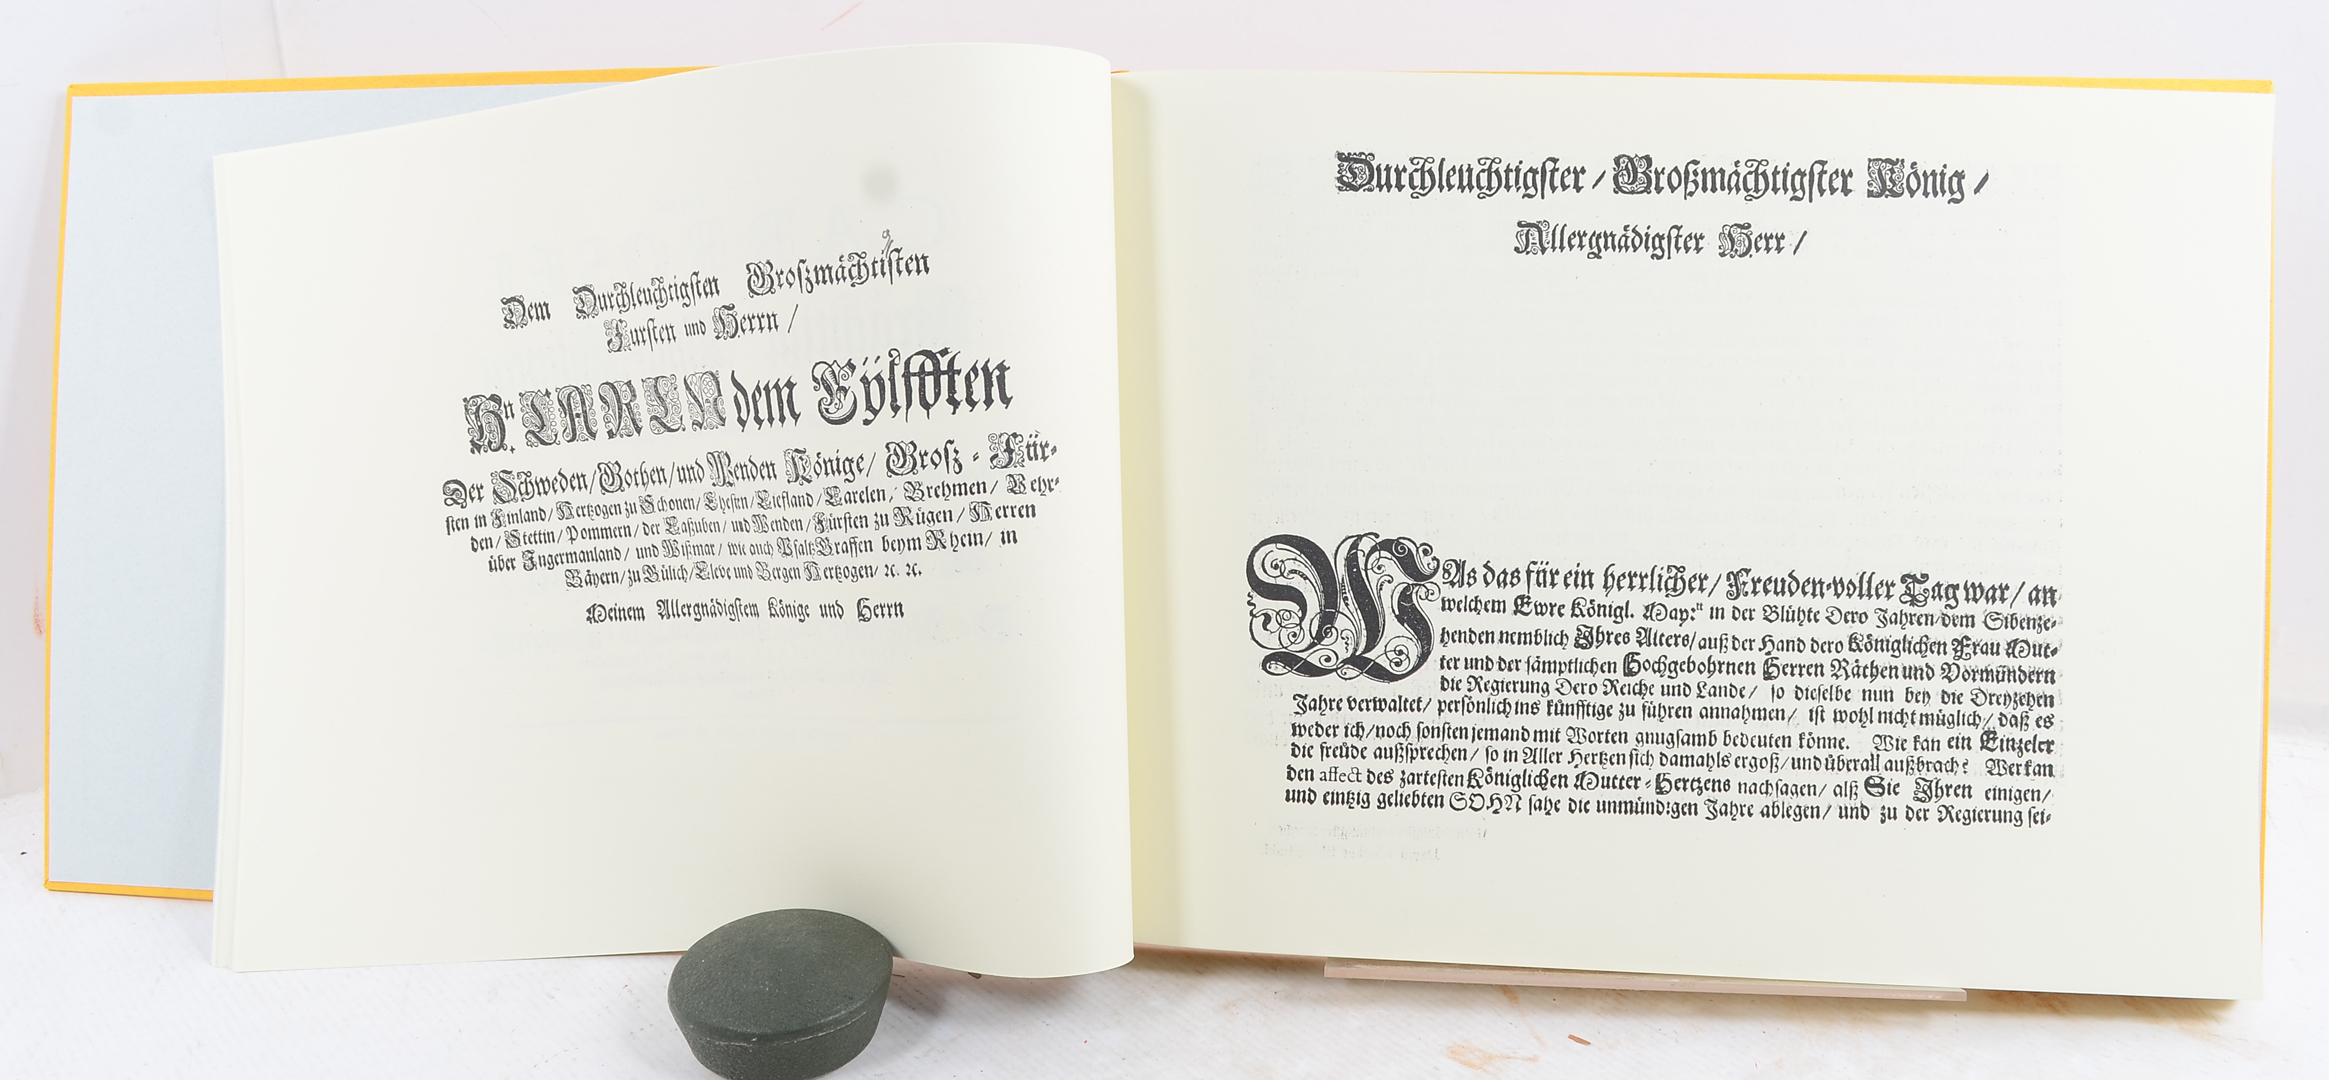 Dem Durchleuchtigsten Großmächtisten
g
Fursten und Herrn /
Hn. CARLN dem Eylfften
Der Schweden / Gothen / und Wenden Könige / Grosz - Für-
sten in Finland / Hertzogen zu Schonen / Ehesten / Liefland / Carelen / Brehmen / Vehr-
den / Stettin / Pommern / der Caßuben / und Wenden / Fürsten zu Rügen / Herren
über Ingermanland / und Wißmar / wie auch Pfaltz Graffen beym Rhein / in
Bäyern / zu Gülich / Cleve und Bergen Hertzogen / ꝛc. ꝛc.
Meinem Allergnädigstem Könige und Herrn
Durchleuchtigster / Großmächtigster König /
Allergnädigster Herr /
WAs das für ein herrlicher / Freuden-voller Tag war / an
welchem Ewre Königl. May:tt in der Blühte Dero Jahren / dem Sibenze-
henden nemblich Ihres Alters / auß der Hand dero Königlichen Frau Mut-
ter und der sämptlichen Hochgebohrnen Herren Räthen und Vormündern
die Regierung Dero Reiche und Lande / so dieselbe nun bey die Dreyzehen
Jahre verwaltet / persönlich ins künfftige zu führen annahmen / ist wohl nicht müglich / daß es
weder ich / noch sonsten jemand mit Worten gnugsamb bedeuten könne. Wie kan ein Einzeler
die freüde außsprechen / so in Aller Hertzen sich damahls ergoß / und überall außbrach? Wer kan
den affect des zartesten Königlichen Mutter-Hertzens nachsagen / alß Sie Ihren einigen /
und eintzig geliebten SOHN sahe die unmündigen Jahre ablegen / und zu der Regierung sei-